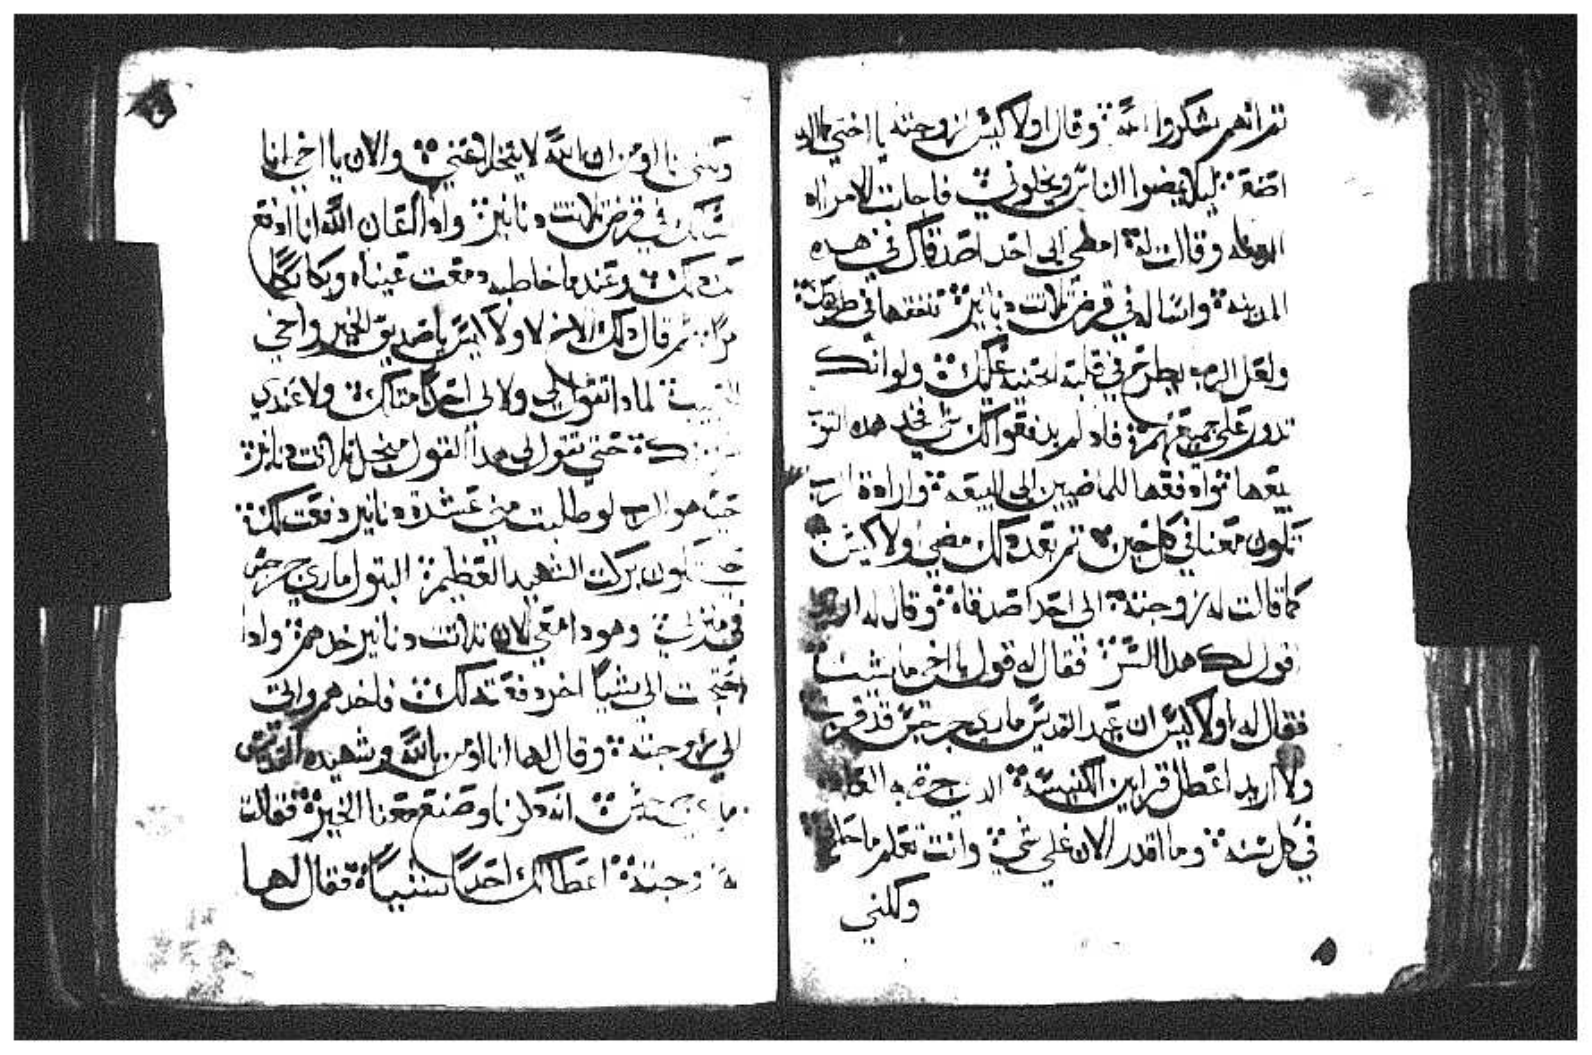 ثم انهم شكروا الله وقال اولاكيس لزوجته يا اختي
اصنع ليلا يمضوا الناس ويخلوني فاجابت الامراه
المومنه وقالت له امضي الي احد اصدقاك في هده
المدينه واساله في قرض تلات دنانير تنفقها في
ولعل الرب يطرح في قلبه الحنيه عليك ولو انك
تدور علي جميعهم فاد لم يدفعوا لك شي فخد هده التوب
بيعها تواة فقها للماضيين الي البيعه وارادة الرب
تكون معنا في كل حين تم بعد دلك مضي اولاكيس
كما قالت له زوجته الي احد اصدقاه وقال له اريد
اقول لك هدا السر فقال له قول يا اخي ما شيت
فقال له اولاكيس ان عيد القديس ماري جرجس قد قرب
ولا اريد اعطل قرابين الكنيسه الدي
في كل سنه وما اقدر الان علي شي وانت تعلم ما
ولكني
انا اومن ان الله لا يتخلا عني والان يا اخي انا
في قرض تلات دنانير واد اعان الله انا ادفع
وعند ما خاطبه دمعت عيناه وبكا بكا
مرا ثم قال دلك الاخ لاولاكيس يا صديق الخير واخي
الحبيب لمادا تقول لي ولا لي احد مثلك ولا عندي
حتي تقول لي هدا القول من اجل تلات دنانير
حي هو الرب لو طلبت مني عشرة دنانير دفعت لك
تكون بركت الشهيد العظيم البتول ماري جرجس
في منزلي وهودا معي الان تلات دنانير خدهم وادا
احتجت الي شيا اخر دفعته لك فاخدهم واتي
الي زوجته وقال لها انا اومن بالله وشهيده القديس
ماري جرجس انه دكرنا وصنع معنا الخير فقالت
له زوجته اعطا لك احدا شيا فقال لها